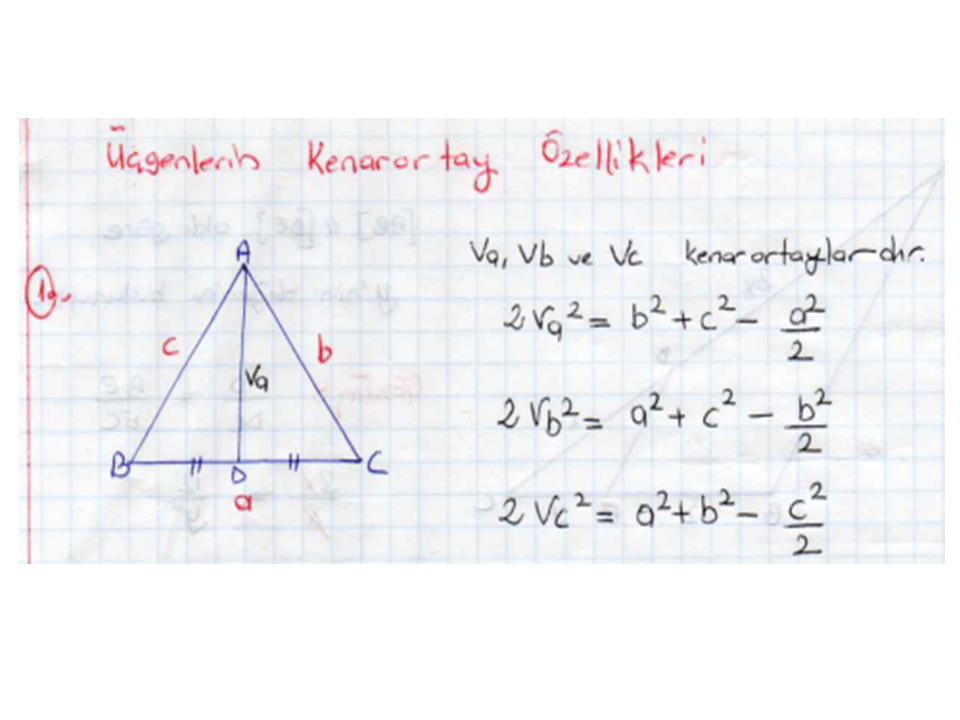 Üçgenlerin Kenarortay Özellikleri
1.
A
c
b
Va
B
D
C
a
Va, Vb ve Vc kenarortaylardır.
2Va² = b² + c² - a²/2
2Vb² = a² + c² - b²/2
2Vc² = a² + b² - c²/2